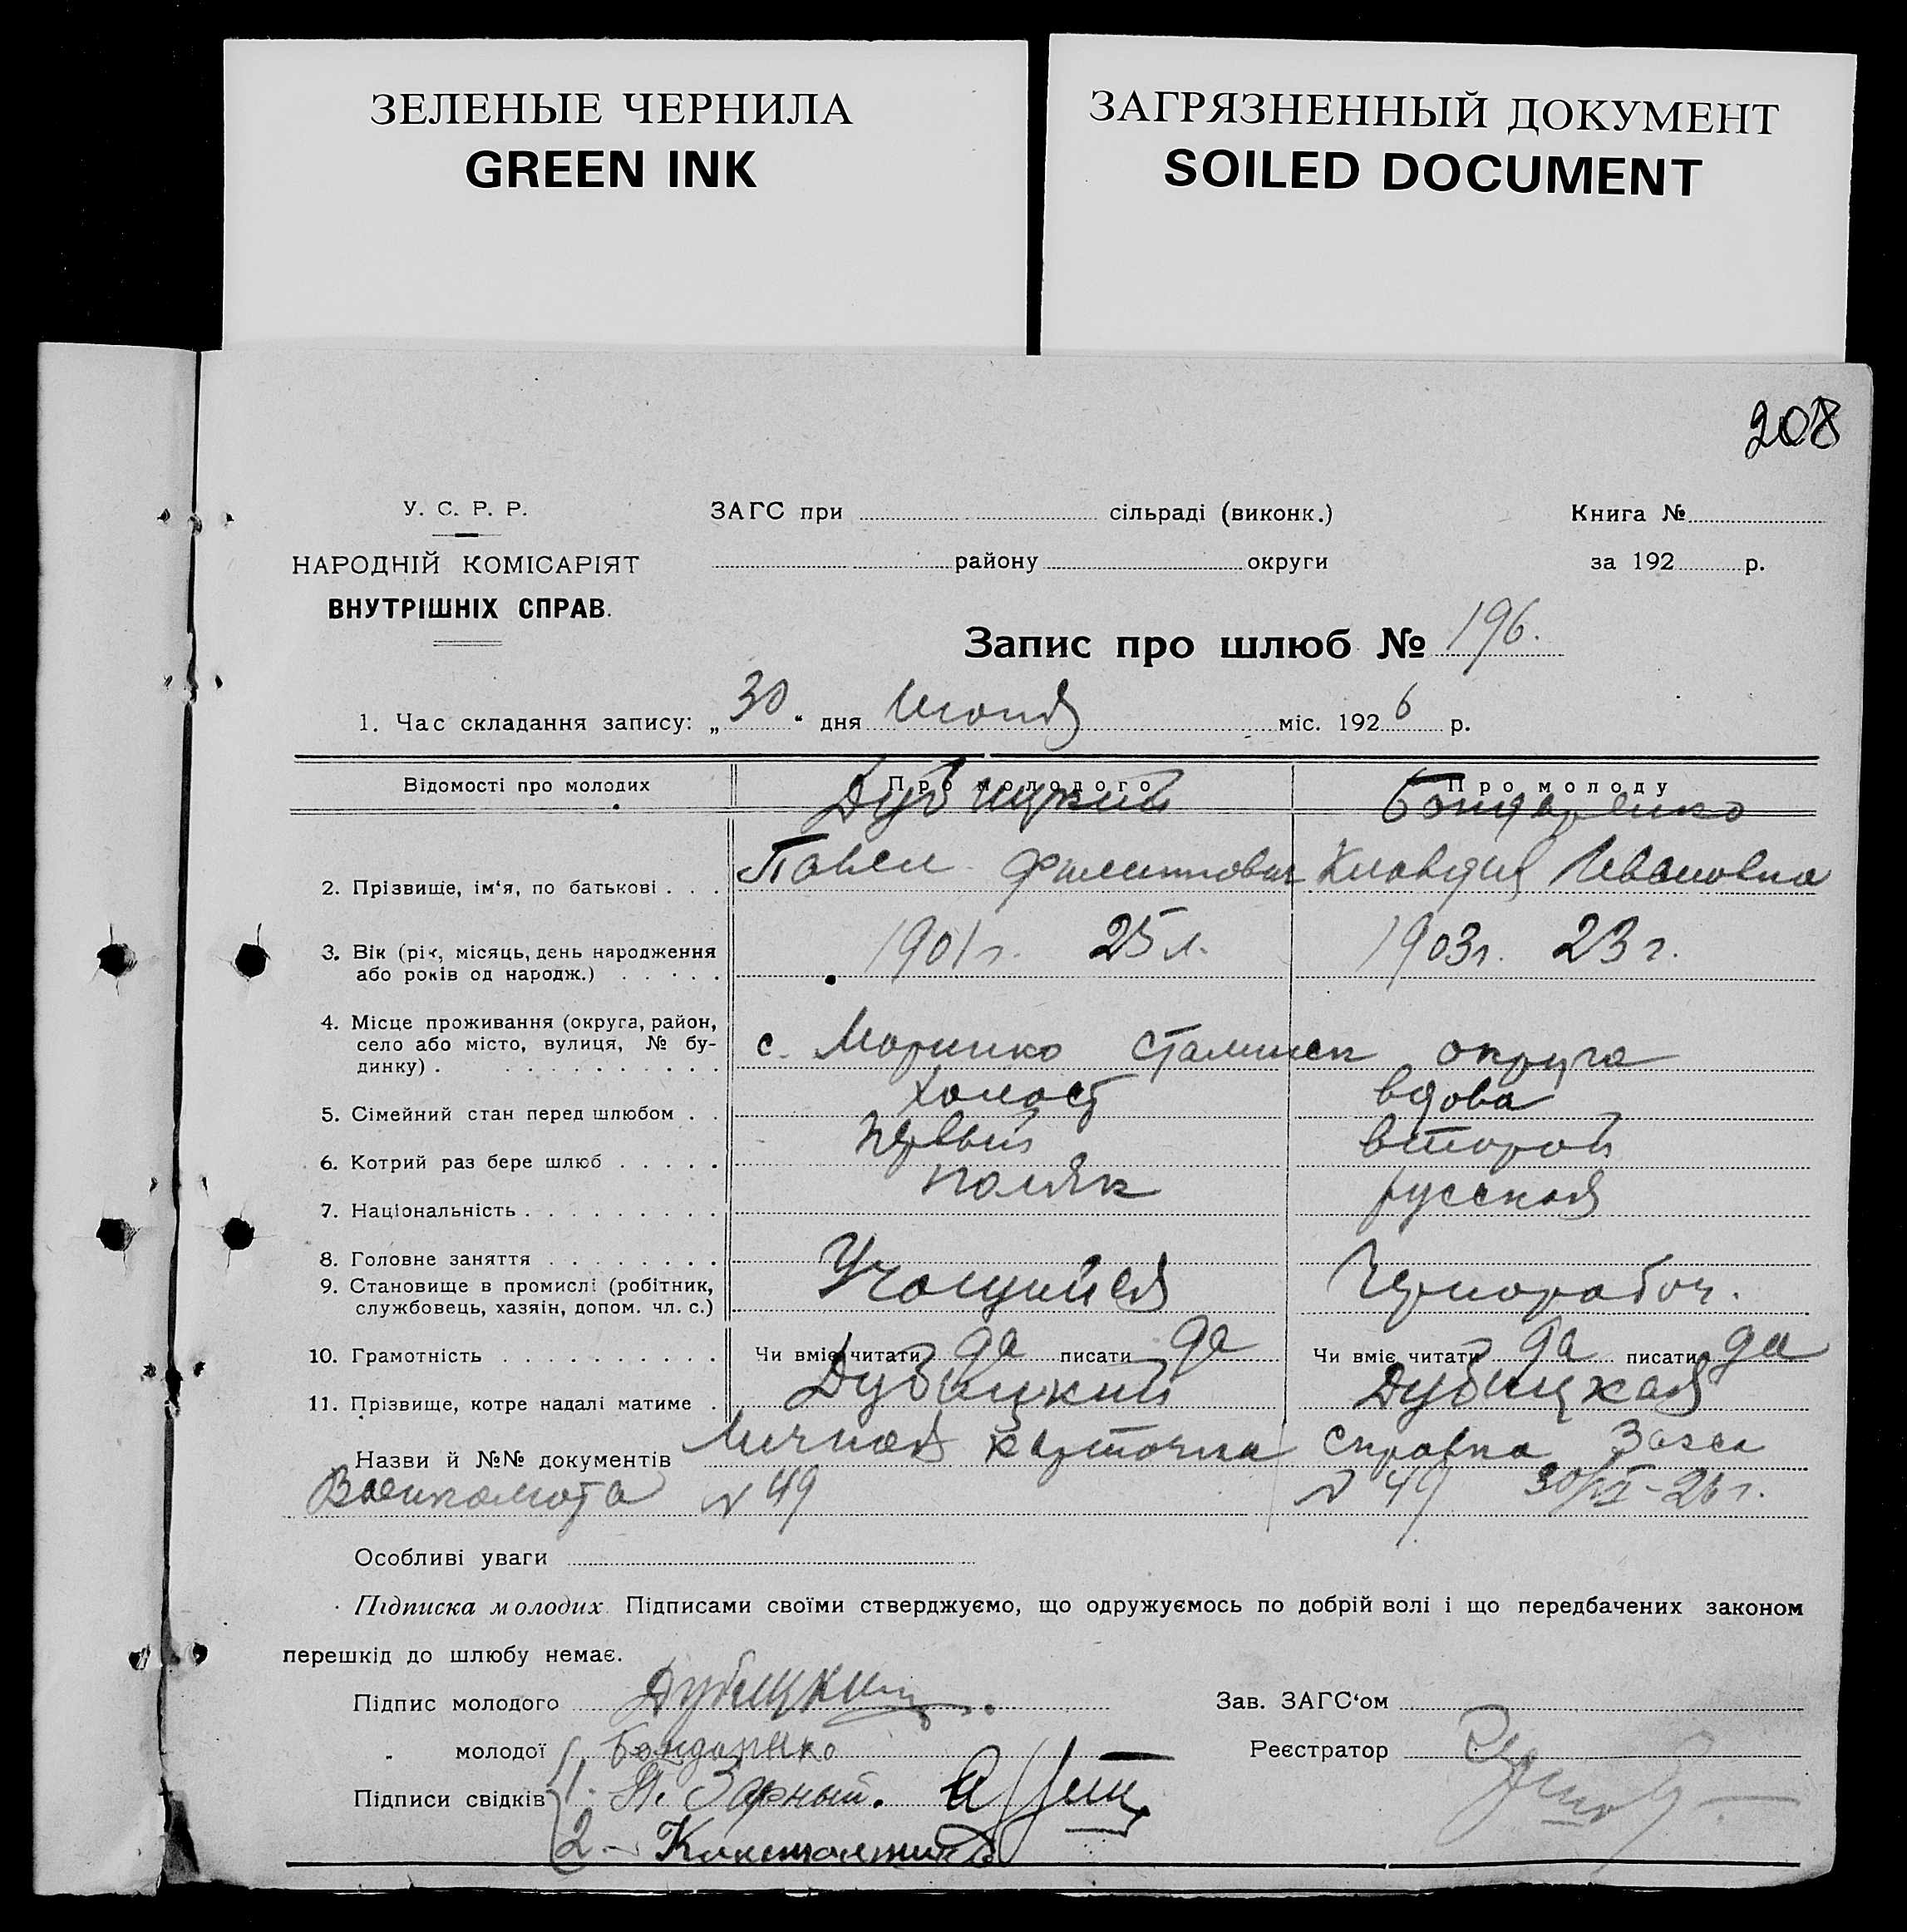 ЗЕЛЕНЫЕ ЧЕРНИЛА
GREEN INK
ЗАГРЯЗНЕННЫЙ ДОКУМЕНТ
SOILED DOCUMENT
208
У. С. Р. Р.
НАРОДНІЙ КОМІСАРІЯТ
ВНУТРІШНІХ СПРАВ.
ЗАГС при сільраді (виконк.)
району округи
Книга №
за 192 р.
Запис про шлюб № 196.
1. Час складання запису: „30" дня Июня міс. 1926 р.
Відомості про молодих Про молодого Про молоду
Дубицкий Бондаренко
2. Прізвище, ім'я, по батькові . . . Павел Филиппович Клавдия Ивановна
3. Вік (рік, місяць, день народження 1901 г. 25 л. 1903 г. 23 г.
або років од народж.) . . . . .
4. Місце проживання (округа, район,
село або місто, вулиця, № бу- с. Маринко Сталинск округа
динку) . . . . . . . . . . .
5. Сімейний стан перед шлюбом . . холост вдова
6. Котрий раз бере шлюб . . . . . первый второй
7. Національність . . . . . . . . . поляк русская
8. Головне заняття . . . . . . . .
9. Становище в промислі (робітник, Учащийся Чернорабоч.
службовець, хазяін, допом. чл. с.)
10. Грамотність . . . . . . . . . . Чи вміє читати да писати да Чи вміє читати да писати да
11. Прізвище, котре надалі матиме . Дубицкий Дубицкая
Назви й №№ документів Личная карточка справка Загса
Военкомата № 49 № 49 30/VI-26 г.
Особливі уваги
Підписка молодих. Підписами своїми стверджуємо, що одружуємось по добрій волі і що передбачених законом
перешкід до шлюбу немає.
Підпис молодого Дубицкий Зав. ЗАГС'ом
" молодої Бондаренко Реєстратор
Підписи свідків 1. Зарный.
2.